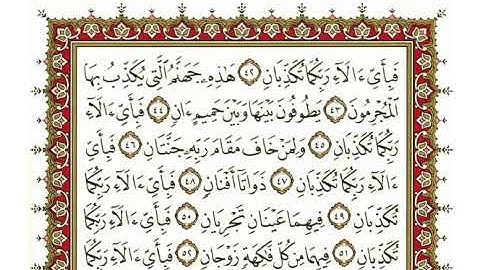 فَبِأَيِّ ءَالَآءِ رَبِّكُمَا تُكَذِّبَانِ ٤٢ هَٰذِهِۦ جَهَنَّمُ ٱلَّتِى يُكَذِّبُ بِهَا
ٱلْمُجْرِمُونَ ٤٣ يَطُوفُونَ بَيْنَهَا وَبَيْنَ حَمِيمٍ ءَانٍ ٤٤ فَبِأَيِّ ءَالَآءِ
رَبِّكُمَا تُكَذِّبَانِ ٤٥ وَلِمَنْ خَافَ مَقَامَ رَبِّهِۦ جَنَّتَانِ ٤٦ فَبِأَيِّ
ءَالَآءِ رَبِّكُمَا تُكَذِّبَانِ ٤٧ ذَوَاتَآ أَفْنَانٍ ٤٨ فَبِأَيِّ ءَالَآءِ رَبِّكُمَا
تُكَذِّبَانِ ٤٩ فِيهِمَا عَيْنَانِ تَجْرِيَانِ ٥٠ فَبِأَيِّ ءَالَآءِ رَبِّكُمَا
تُكَذِّبَانِ ٥١ فِيهِمَا مِن كُلِّ فَٰكِهَةٍ زَوْجَانِ ٥٢ فَبِأَيِّ ءَالَآءِ رَبِّكُمَا